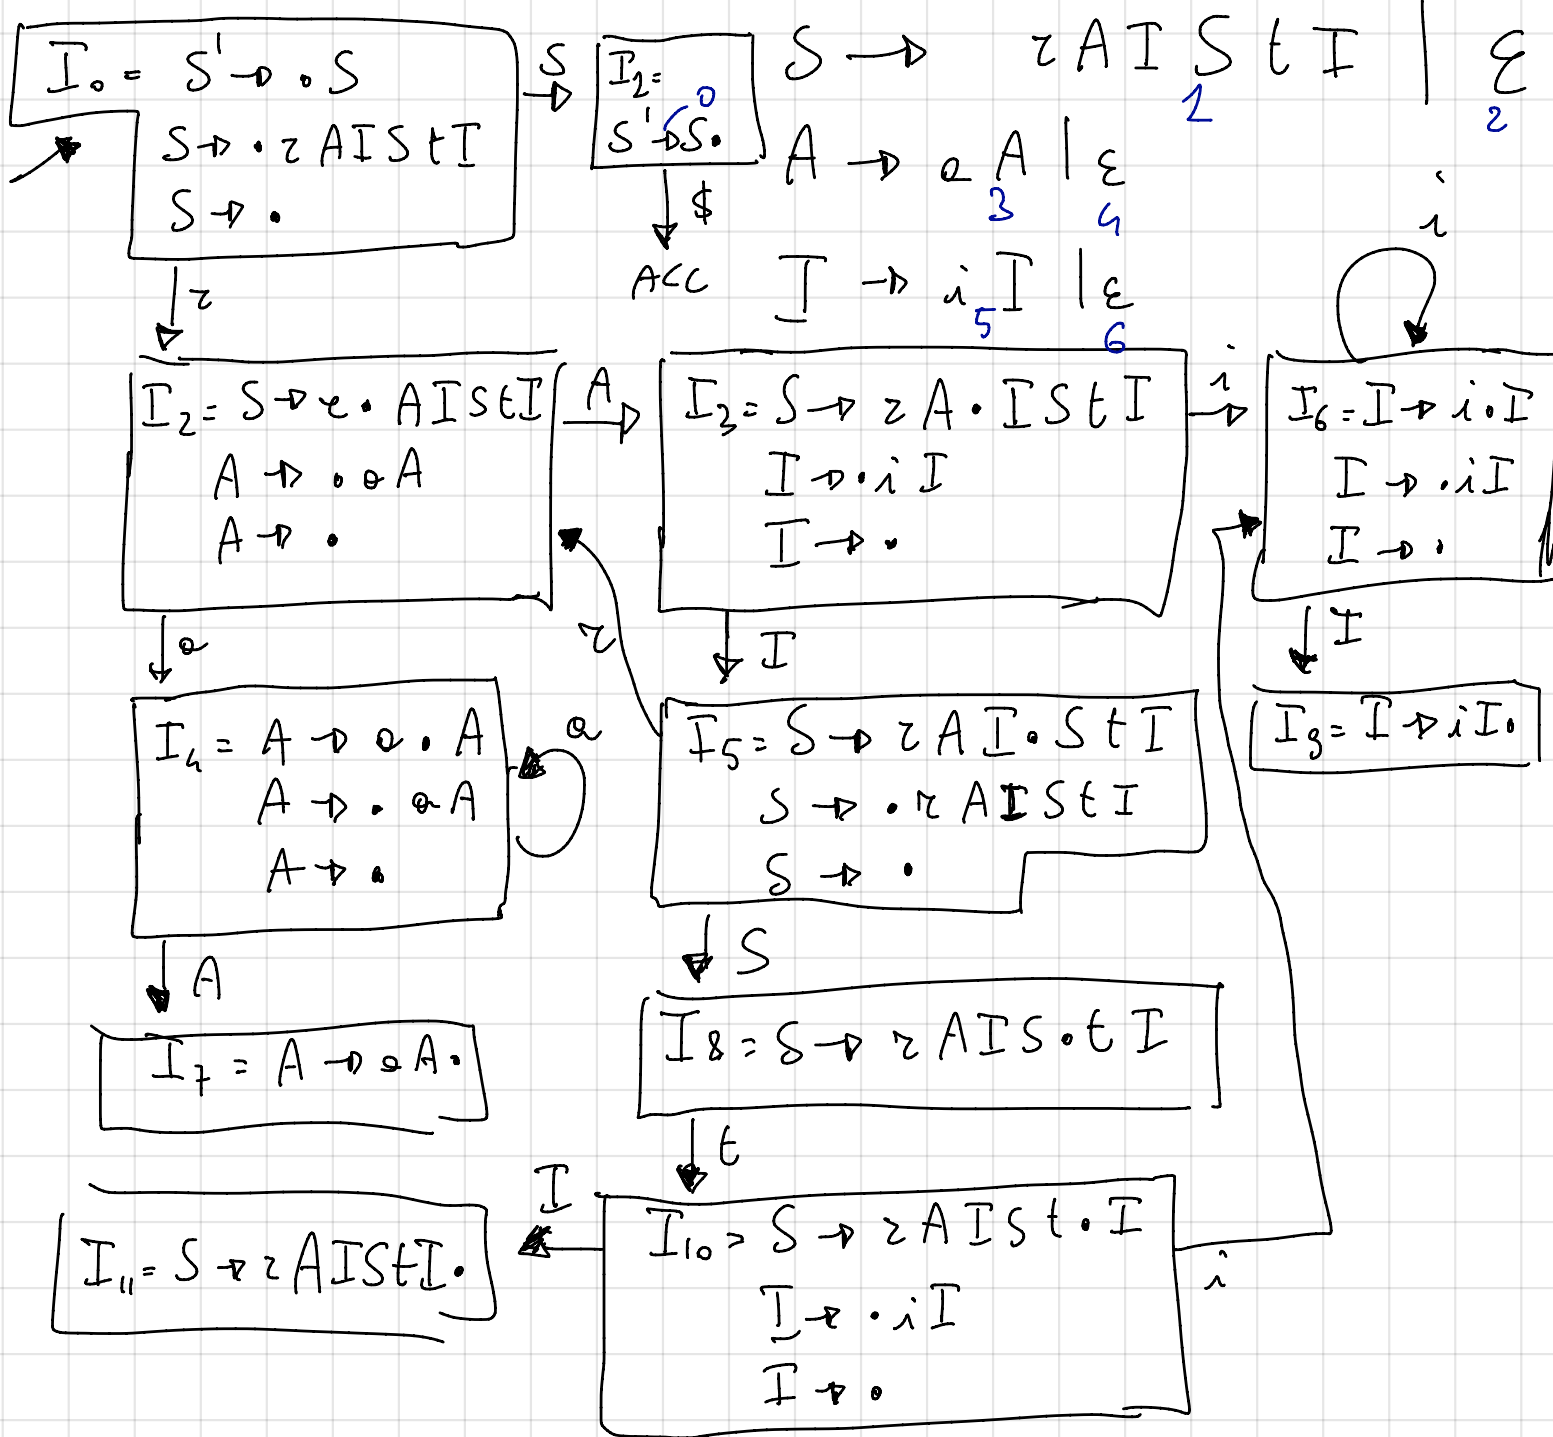 I₀ = S' → . S
S → . r A I S t I
S → .
S
I₂ =
S' → S.
0
$
ACC
S → r A I S t I | ε
1 2
A → a A | ε
3 4
I → i I | ε
5 6
r
I₂ = S → r . A I S t I
A → . a A
A → .
A
I₃ = S → r A . I S t I
I → . i I
I → .
i
i
I₆ = I → i . I
I → . i I
I → .
a
r
I
I
I₄ = A → a . A
A → . a A
A → .
a
I₅ = S → r A I . S t I
S → . r A I S t I
S → .
I₉ = I → i I .
A
S
I₇ = A → a A .
I₈ = S → r A I S . t I
t
I
I₁₁ = S → r A I S t I .
I₁₀ = S → r A I S t . I
I → . i I
I → .
i